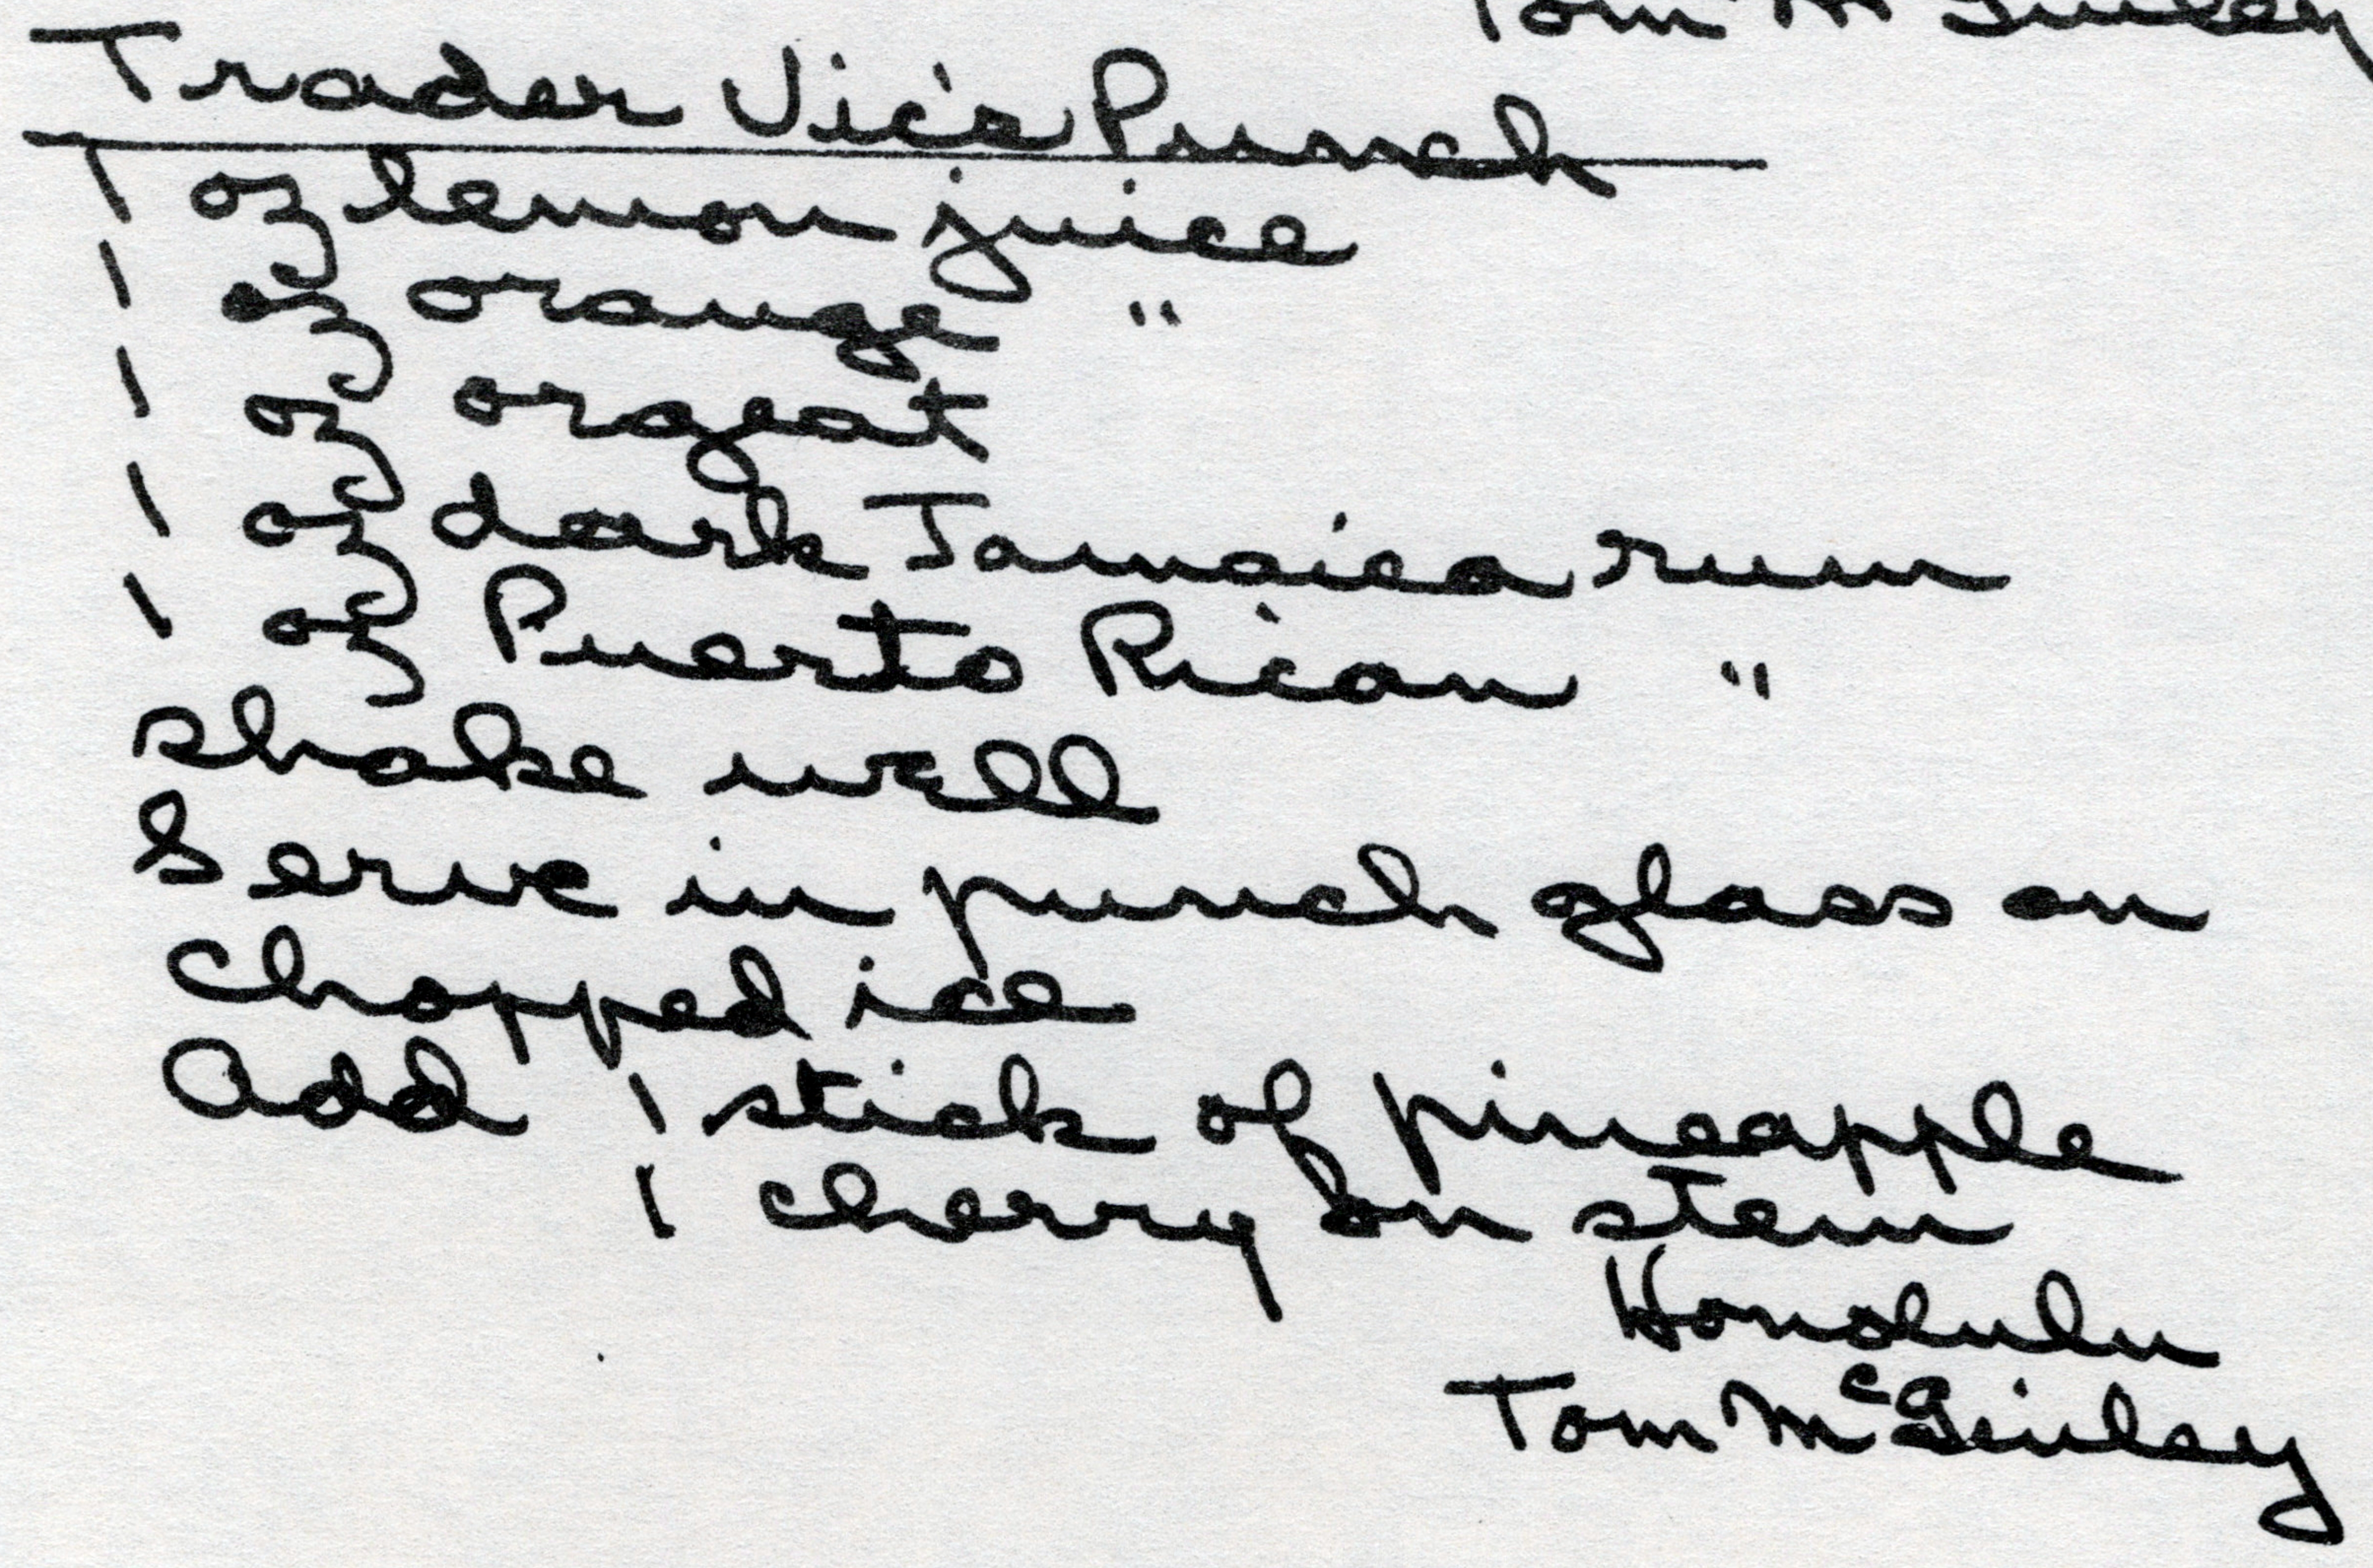 Tom McGinley
Trader Vic's Punch
1 oz lemon juice
1 oz orange "
1 oz orgeat
1 oz dark Jamaica rum
1 oz Puerto Rican "
shake well
Serve in punch glass on
chopped ice
Add 1 stick of pineapple
1 cherry on stem
Honolulu
Tom McGinley